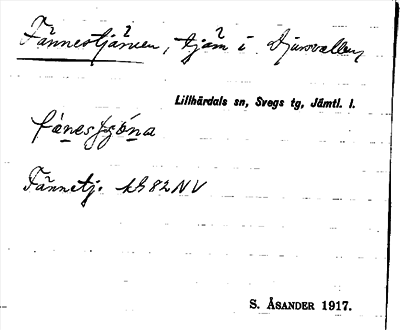 Fännestjärnen, tjärn i Djursvallen
Lillhärdals sn, Svegs tg, Jämtl. l.
fænesʃɔ́na
Fännetj. kB 82 NV
S. ÅSANDER 1917.